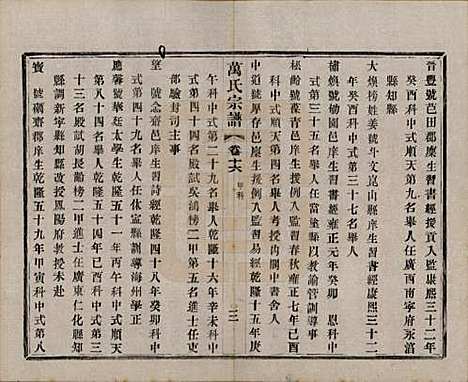 晋豐號邑田郡廩生習書經援貢入監康熙三十二年
癸酉科中式順天第九名舉人任雲南寧府
縣知縣
大煥榜姓姜號斗文崑山縣庠生習書經康熙三十二
年癸酉科中式第三十七名舉人
埔號蜨園邑庠生習書經雍正元年癸卯 恩科中
式第三十五名舉人任當塗縣以教諭管訓導事
禄齡號葭青邑廩生援例入監習春秋雍正七年己酉
科中式順天第四名舉人考授內閣中書舍人
中道號厚存邑廩生援例入監習易經乾隆十五年庚
萬氏宗譜 卷十六 甲科 三
午科中式第二十六名舉人乾隆十六年辛未科中
式第四十四名殿試吳鴻榜二甲第五名進士任吏
部驗封司主事
望 號念齋邑庠生習詩經乾隆四十八年癸卯科中
式第四十九名舉人任休寧縣訓導海州學正
應馨號華廷太學生乾隆五十一年丙午科中式順天
第八十四名舉人乾隆五十四年己酉科中式第九
十名殿試胡長齡榜二甲進士任廣東仁化縣知
縣調新寧縣知縣改授鳳陽府教授未赴
寶 號礪齋廩庠生乾隆五十九年甲寅科中式第八